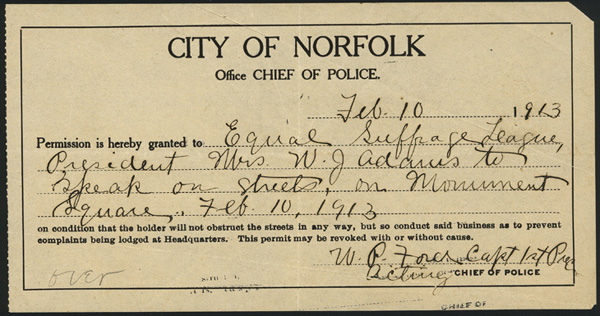 CITY OF NORFOLK
Office CHIEF OF POLICE.
Feb. 10 1913
Permission is hereby granted to Equal Suffrage League,
President Mrs. W. J Adams to
Speak on Streets, on Monument
Square., Feb 10, 1913
on condition that the holder will not obstruct the streets in any way, but so conduct said business as to prevent
complaints being lodged at Headquarters. This permit may be revoked with or without cause.
W. P. Capt 1st
Acting CHIEF OF POLICE
over
CHIEF OF